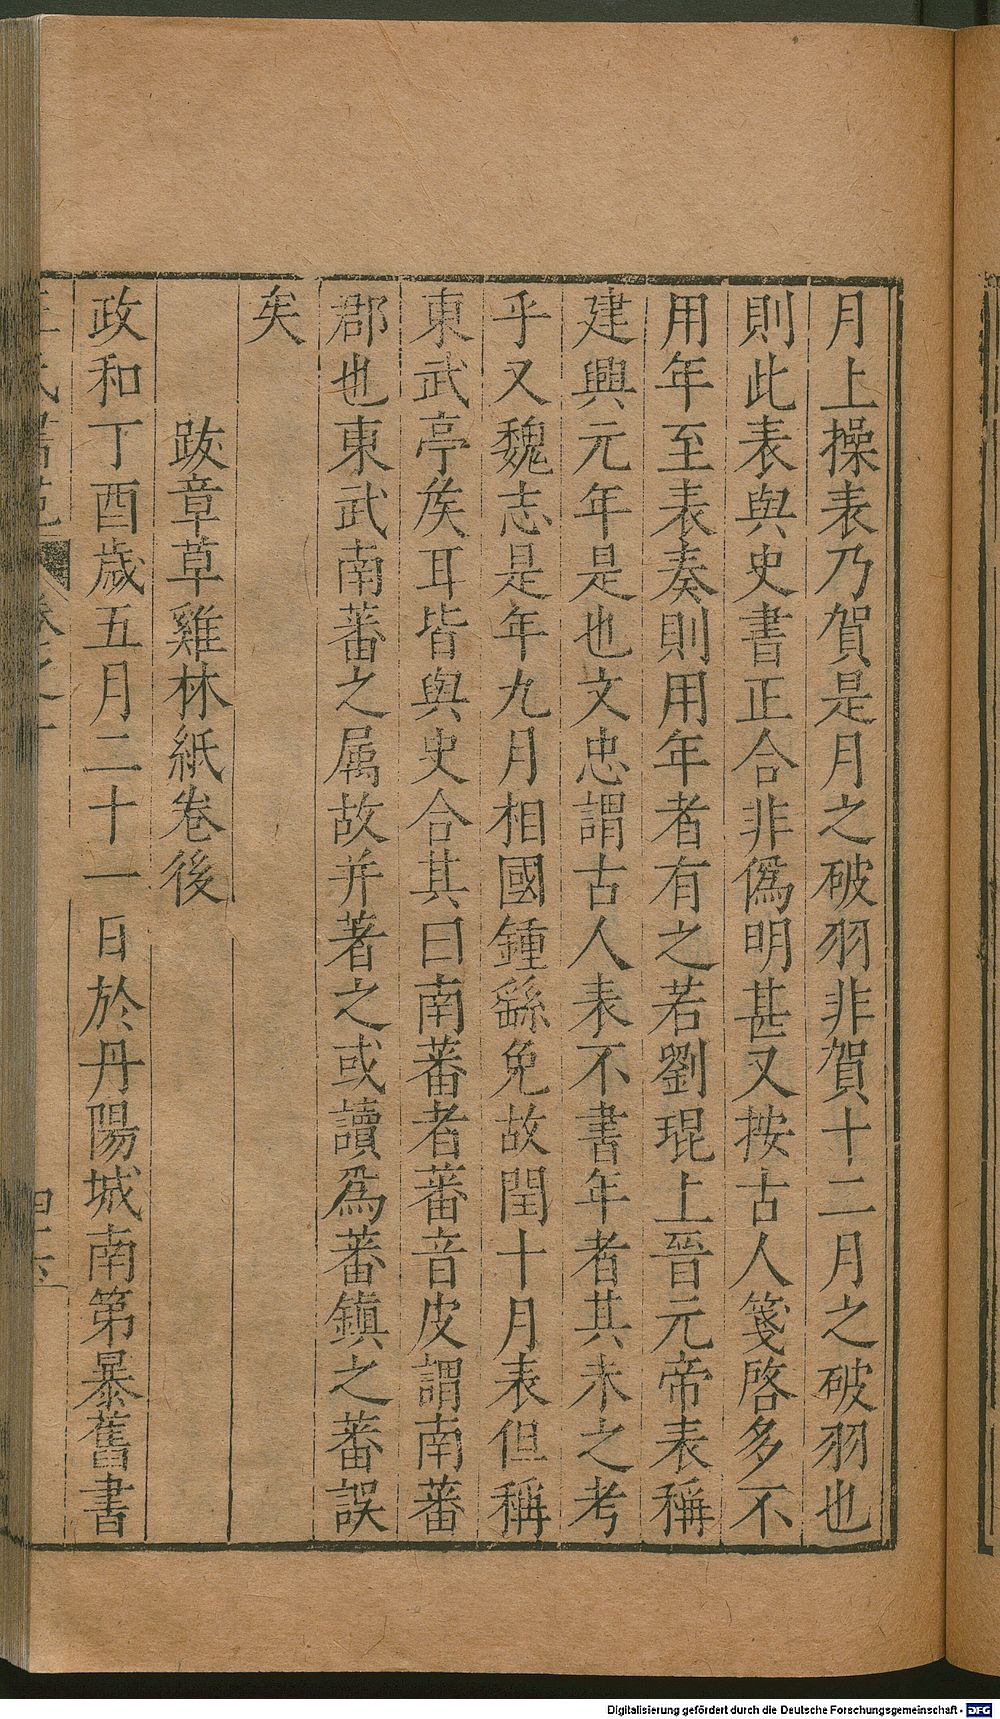 月上操表乃賀是月之破羽非賀十二月之破羽也
則此表與史書正合非僞明甚又按古人箋啓多不
用年至表奏則用年者有之若劉琨上晉元帝表稱
建興元年是也文忠謂古人表不書年者其未之考
乎又魏志是年九月相國鍾繇免故閏十月表但稱
東武亭矦耳皆與史合其曰南蕃者蕃音皮謂南蕃
郡也東武南蕃之属故并著之或讀爲蕃鎮之蕃誤
矣
跋章草雞林紙卷後
政和丁酉歲五月二十一日於丹陽城南第暴舊書
Digitalisierung gefördert durch die Deutsche Forschungsgemeinschaft - DFG